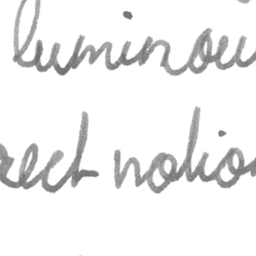 luminou
ect notio